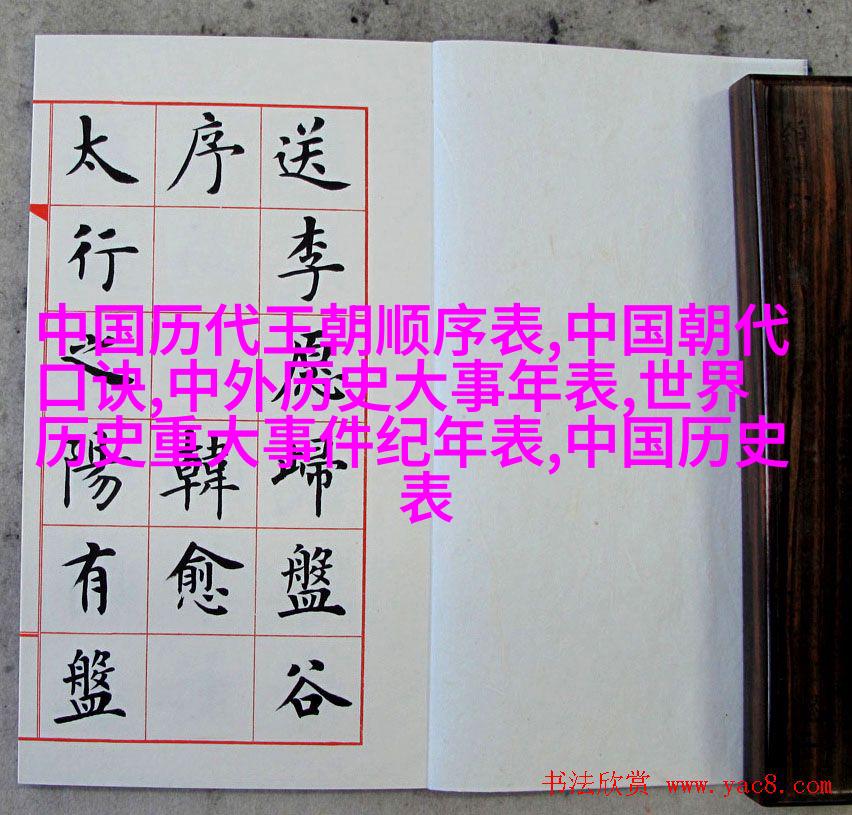 送李愿歸盤谷
序 韓愈
太行之陽有盤
中国历代王朝顺序表,中国朝代
口诀,中外历史大事年表,世界
历史重大事件纪年表,中国历史
表
书法欣赏 www.yac8.com